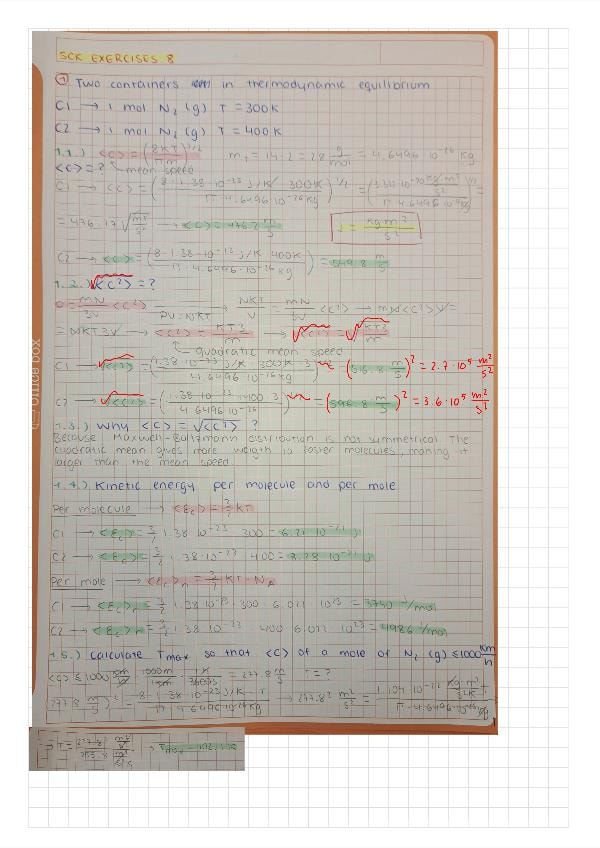 SCK EXERCISES 8
① Two containers in thermodynamic equilibrium
C1 → 1 mol N₂ (g) T = 300K
C2 → 1 mol N₂ (g) T = 400K
1.1.) <c> = (8KT/πm)^1/2 m₁ = 14·2 = 28 g/mol = 4.6496·10⁻²⁶ kg
<c> = ? mean speed
C1 → <c> = (8·1.38·10⁻²³ J/K · 300K / π·4.6496·10⁻²⁶ kg)^1/2 =
= 476.17 √(m²/s²) → <c> = 476.2 m/s J = kg·m²/s²
C2 → <c> = (8·1.38·10⁻²³ J/K · 400K / π·4.6496·10⁻²⁶ kg) = 549.8 m/s
1.2.) √<c²> = ?
P = mN/3V <c²> → PV = NKT → NKT/V = mN/3V <c²> → mN<c²>V =
= NKT3V → <c²> = KT3/m → √<c²> = √KT3/m
quadratic mean speed
C1 → √<c²> = (1.38·10⁻²³ J/K · 300K · 3 / 4.6496·10⁻²⁶ kg)^1/2 = (516.8 m/s)² = 2.7·10⁵ m²/s²
C2 → √<c²> = (1.38·10⁻²³ · 400 · 3 / 4.6496·10⁻²⁶) = (596.8 m/s)² = 3.6·10⁵ m²/s²
1.3.) Why <c> = √<c²> ?
Because Maxwell-Boltzmann distribution is not symmetrical. The
quadratic mean gives more weigth to faster molecules, making it
larger than the mean speed.
1.4.) Kinetic energy per molecule and per mole
Per molecule → <Ec> = 3/2 KT
C1 → <Ec> = 3/2 · 1.38·10⁻²³ · 300 = 6.21·10⁻²¹ J
C2 → <Ec> = 3/2 · 1.38·10⁻²³ · 400 = 8.28·10⁻²¹ J
Per mole → <Ec>n = 3/2 KT·N_A
C1 → <Ec>n = 3/2 1.38·10⁻²³ · 300 · 6.022 10²³ = 3740 J/mol
C2 → <Ec>n = 3/2 · 1.38·10⁻²³ · 400 · 6.022 10²³ = 4986 J/mol
1.5.) Calculate Tmax so that <c> of a mole of N₂ (g) ≤ 1000 km/h
<c> ≤ 1000 km/h · 1000m/1km · 1h/3600s = 277.8 m/s T = ?
(277.8 m/s)² = 8·1.38·10⁻²³ J/K · T / π·4.6496·10⁻²⁶ kg → 277.8² m²/s² = 1.104·10⁻²² kg·m²/s²K T / π·4.6496·10⁻²⁶ kg
office box